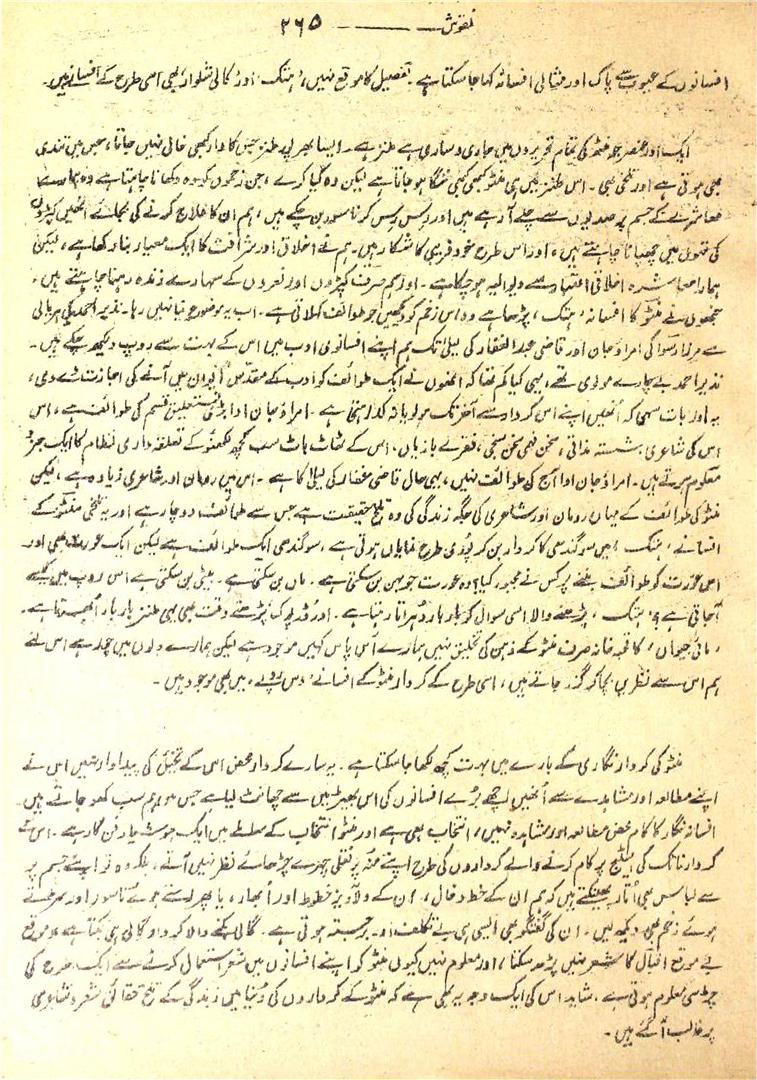 نقوش ———— ۲۶۵
افسانوں کے عیوب سے پاک اور مثالی افسانہ کہا جا سکتا ہے۔ تفصیل کا موقع نہیں، ’ہتک‘ اور ’کالی شلوار‘ بھی اسی طرح کے افسانے ہیں۔
ایک اور عنصر جو منٹو کی تمام تحریروں میں جاری و ساری ہے طنز ہے۔ ایسا بھرپور طنز جس کا وار کبھی خالی نہیں جاتا، جس میں تندی
بھی ہوتی ہے اور تلخی بھی۔ اس طنز میں ہی منٹو کبھی کبھی ننگا ہو جاتا ہے لیکن وہ کیا کرے، جن زخموں کو وہ دکھانا چاہتا ہے وہ ہمارے
معاشرے کے جسم پر صدیوں سے چلے آ رہے ہیں اور رِس رِس کر ناسور بن چکے ہیں، ہم ان کا علاج کرنے کی بجائے انھیں کپڑوں
کی تہوں میں چھپانا چاہتے ہیں، اور اس طرح خود فریبی کا شکار ہیں۔ ہم نے اخلاق اور شرافت کا ایک معیار بنا رکھا ہے، لیکن
ہمارا معاشرہ اخلاقی اعتبار سے دیوالیہ ہو چکا ہے۔ اور ہم صرف کپڑوں اور نعروں کے سہارے زندہ رہنا چاہتے ہیں۔
جنھوں نے منٹو کا افسانہ ’ہتک‘ پڑھا ہے وہ اس زخم کو دیکھیں جو طوائف کہلاتی ہے۔ اب یہ موضوع نیا نہیں رہا۔ نذیر احمد کی ہریالی
سے مرزا رسوا کی امراؤ جان اور قاضی عبدالغفار کی لیلیٰ تک ہم اپنے افسانوی ادب میں اس کے بہت سے روپ دیکھ چکے ہیں۔
نذیر احمد بے چارے مولوی تھے، یہی کیا کم تھا کہ انھوں نے ایک طوائف کو ادب کے مقدس ایوان میں آنے کی اجازت دے دی،
یہ اور بات سہی کہ انھیں اپنے اس کردار سے آخر تک مولویانہ کد رہتی ہے۔ امراؤ جان ادا بڑی نستعلیق قسم کی طوائف ہے، اس
اس کی شاعری شستہ مذاقی، سخن فہمی سخن سنجی، فقرے بازیاں، اس کے ٹھاٹ باٹ سب کچھ لکھنؤ کے تعلقہ داری نظام کا ایک جز
معلوم ہوتے ہیں۔ امراؤ جان ادا آج کی طوائف نہیں، یہی حال قاضی غفار کی لیلیٰ کا ہے۔ اس میں رومان اور شاعری زیادہ ہے، لیکن
منٹو کی طوائف کے یہاں رومان اور شاعری کی جگہ زندگی کی وہ تلخ حقیقت ہے جس سے طوائف دوچار ہے اور یہ تلخی منٹو کے
افسانے ’ہتک‘ میں سوگندھی کا کردار بن کر پوری طرح نمایاں ہوتی ہے، سوگندھی ایک طوائف ہے لیکن ایک عورت بھی اور
اس عورت کو طوائف بننے پر کس نے مجبور کیا؟ وہ عورت جو بہن بن سکتی ہے۔ ماں بن سکتی ہے۔ بیٹی بن سکتی ہے اس روپ میں کیسے
آ جاتی ہے؟ ’ہتک‘ پڑھنے والا اسی سوال کو بار بار دُہراتا رہتا ہے۔ اور ڈرپوک پڑھتے وقت بھی یہی طنز بار بار اُبھرتا ہے۔
’مائی جیواں‘ کا قحبہ خانہ صرف منٹو کے ذہن کی تخلیق نہیں ہمارے آس پاس کہیں موجود ہے لیکن ہمارے دلوں میں چور ہے اس لئے
ہم اس سے نظریں بچا کر گزر جاتے ہیں، اسی طرح کے کردار منٹو کے افسانے ’دس روپے‘ میں بھی موجود ہیں۔
منٹو کی کردار نگاری کے بارے میں بہت کچھ لکھا جا سکتا ہے۔ یہ سارے کردار محض اس کے تخیل کی پیداوار نہیں اس نے
اپنے مطالعہ اور مشاہدے سے انھیں اچھے بُرے انسانوں کی اس بھیڑ میں سے چھانٹ لیا ہے جس میں ہم سب کھو جاتے ہیں۔
افسانہ نگار کا کام محض مطالعہ اور مشاہدہ نہیں، انتخاب بھی ہے اور منٹو انتخاب کے معاملے میں ایک ہوشیار فن کار ہے۔ اس کے
کردار ناٹک کی اسٹیج پر کام کرنے والے کرداروں کی طرح اپنے منہ پر نقلی چہرے چڑھائے نظر نہیں آتے، بلکہ وہ تو اپنے جسم پر
سے لباس بھی اُتار پھینکتے ہیں کہ ہم ان کے خط و خال، ان کے دلآویز خطوط اور اُبھار، یا پھر رِستے ہوئے ناسور اور سڑتے
ہوئے زخم بھی دیکھ لیں۔ ان کی گفتگو بھی ایسی ہی بے تکلف اور برجستہ ہوتی ہے۔ گالی بکنے والا کردار گالی ہی بکتا ہے موقع
بے موقع اقبال کا شعر نہیں پڑھ سکتا، اور معلوم نہیں کیوں منٹو کو اپنے افسانوں میں شعر استعمال کرنے سے ایک طرح کی
چڑ سی معلوم ہوتی ہے۔ شاید اس کی ایک وجہ یہ بھی ہے کہ منٹو کے کرداروں کی دُنیا میں زندگی کے تلخ حقائق شعر و شاعری
پر غالب آ گئے ہیں۔